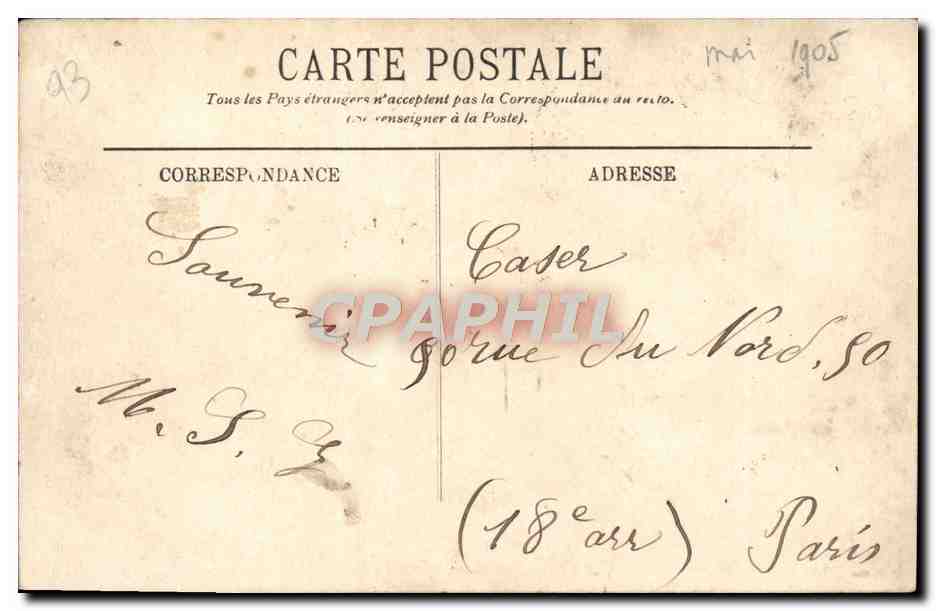 93
mai 1905
CARTE POSTALE
Tous les Pays étrangers n'acceptent pas la Correspondance au recto.
(Se renseigner à la Poste).
CORRESPONDANCE
ADRESSE
Souvenir
M. S.
Caser
90 rue du Nord, 50
(18e arr) Paris
CPAPHIL